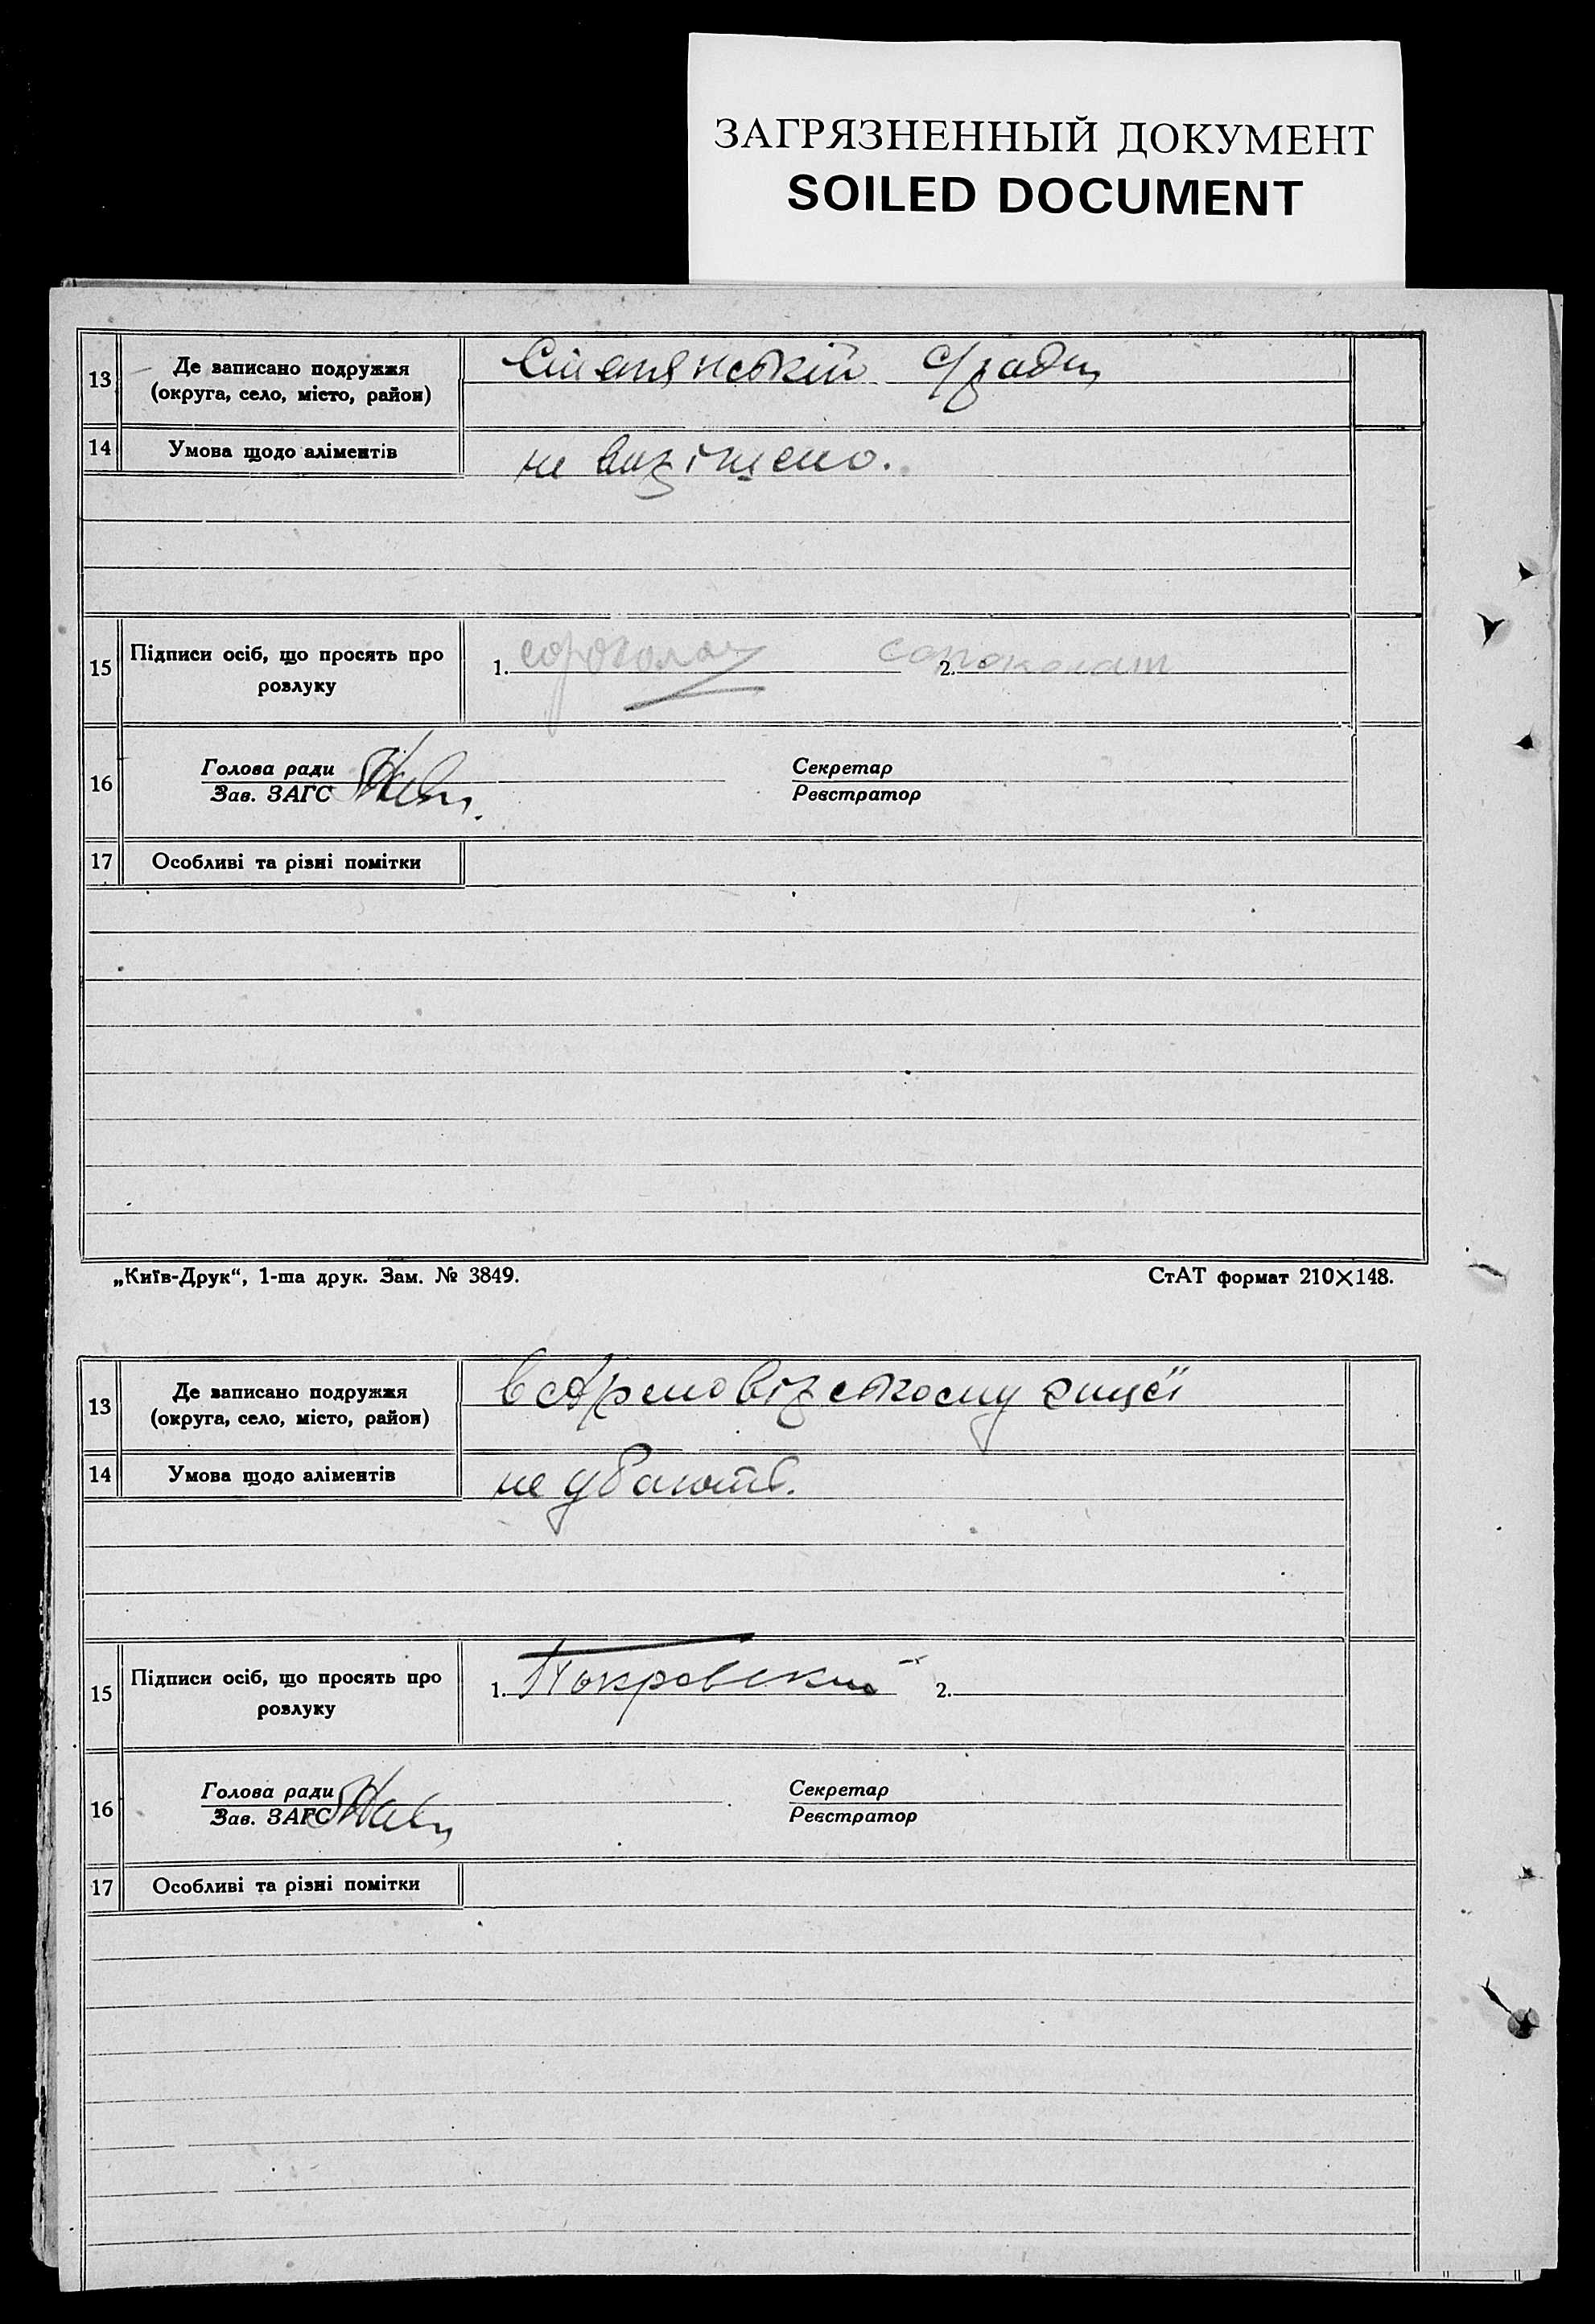 ЗАГРЯЗНЕННЫЙ ДОКУМЕНТ
SOILED DOCUMENT
13 Де записано подружжя
(округа, село, місто, район)
с/ради
14 Умова щодо аліментів
не вирішено.
15 Підписи осіб, що просять про
розлуку
1. 2.
16 Голова ради Секретар
Зав. ЗАГС Реєстратор
17 Особливі та різні помітки
„Київ-Друк“, 1-ша друк. Зам. № 3849. СтАТ формат 210×148.
13 Де записано подружжя
(округа, село, місто, район)
в
14 Умова щодо аліментів
не
15 Підписи осіб, що просять про
розлуку
1. Покровский 2.
16 Голова ради Секретар
Зав. ЗАГС Реєстратор
17 Особливі та різні помітки